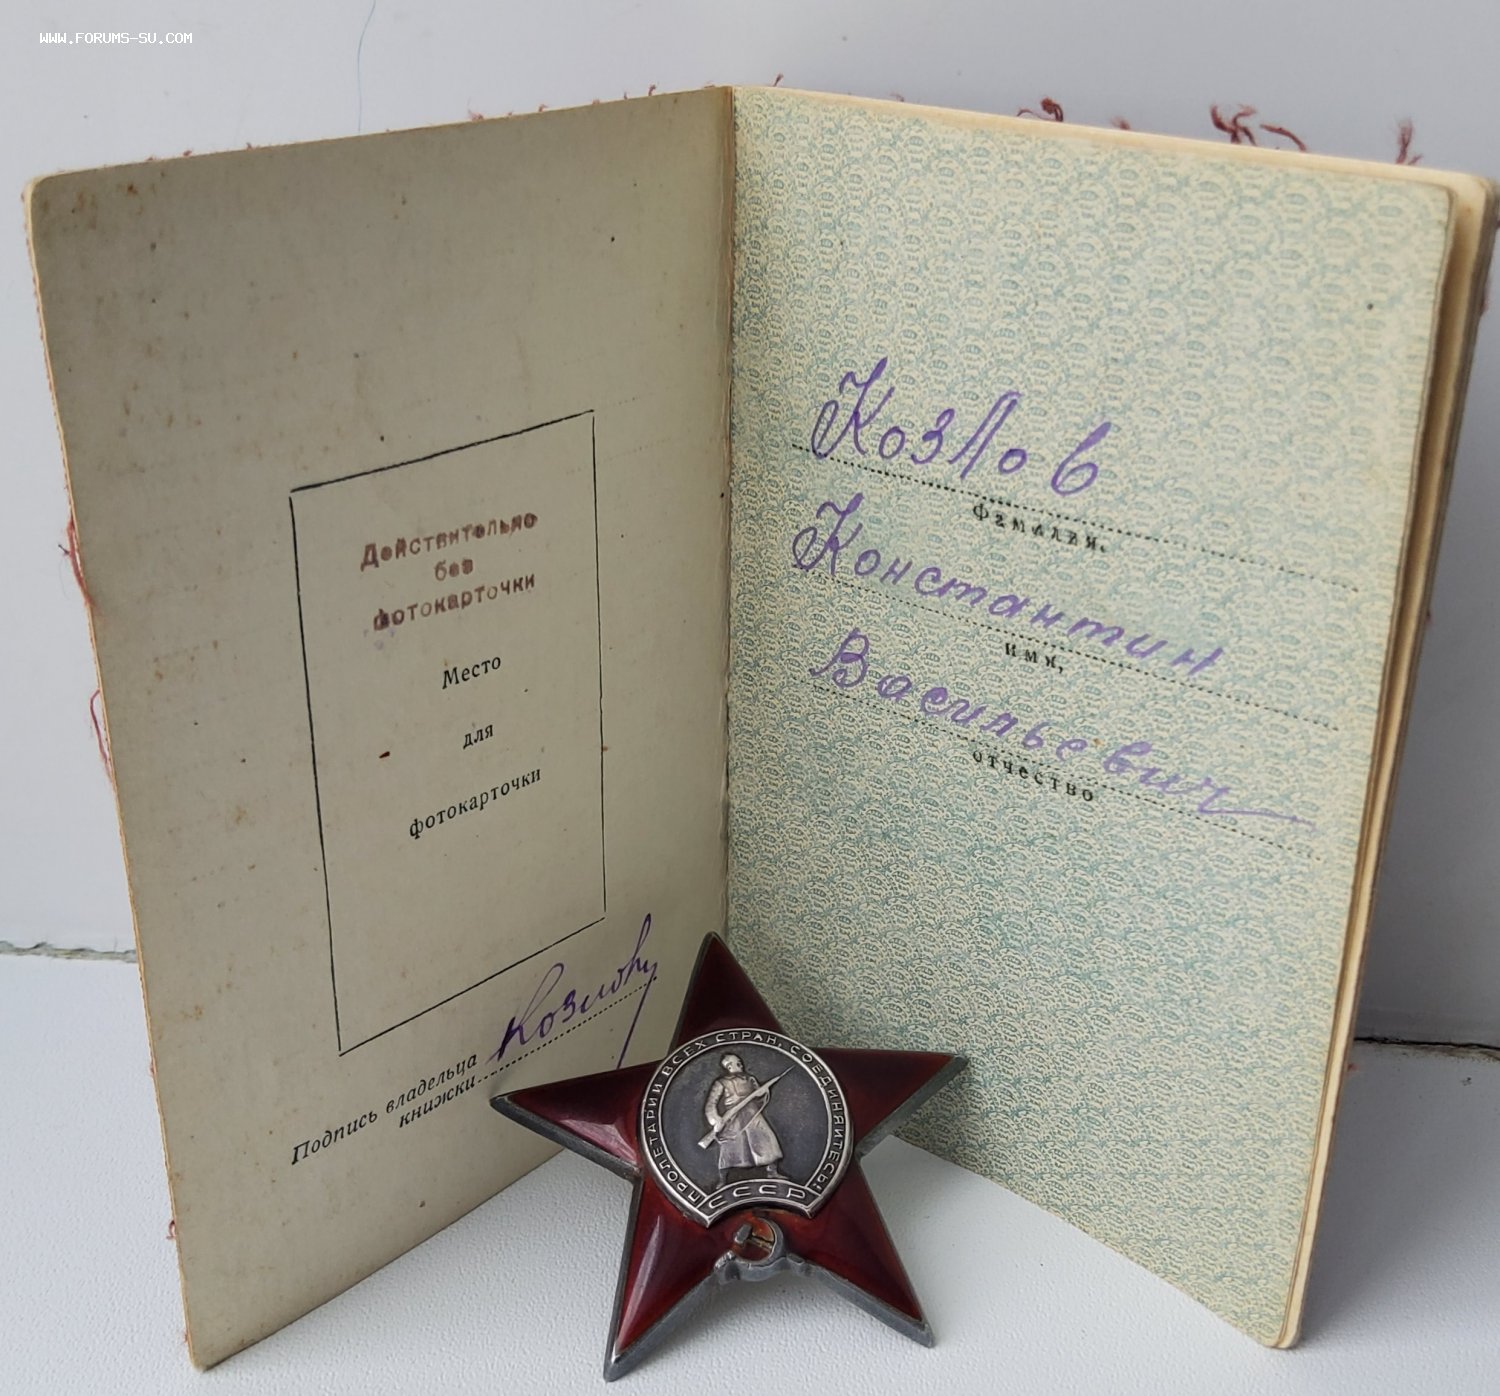 WWW.FORUMS-SU.COM
Действительно
без
фотокарточки
Место
для
фотокарточки
Подпись владельца
книжки
Козлов
Козлов
фамилия,
Константин
имя,
Васильевич
отчество
ПРОЛЕТАРИИ ВСЕХ СТРАН, СОЕДИНЯЙТЕСЬ!
СССР